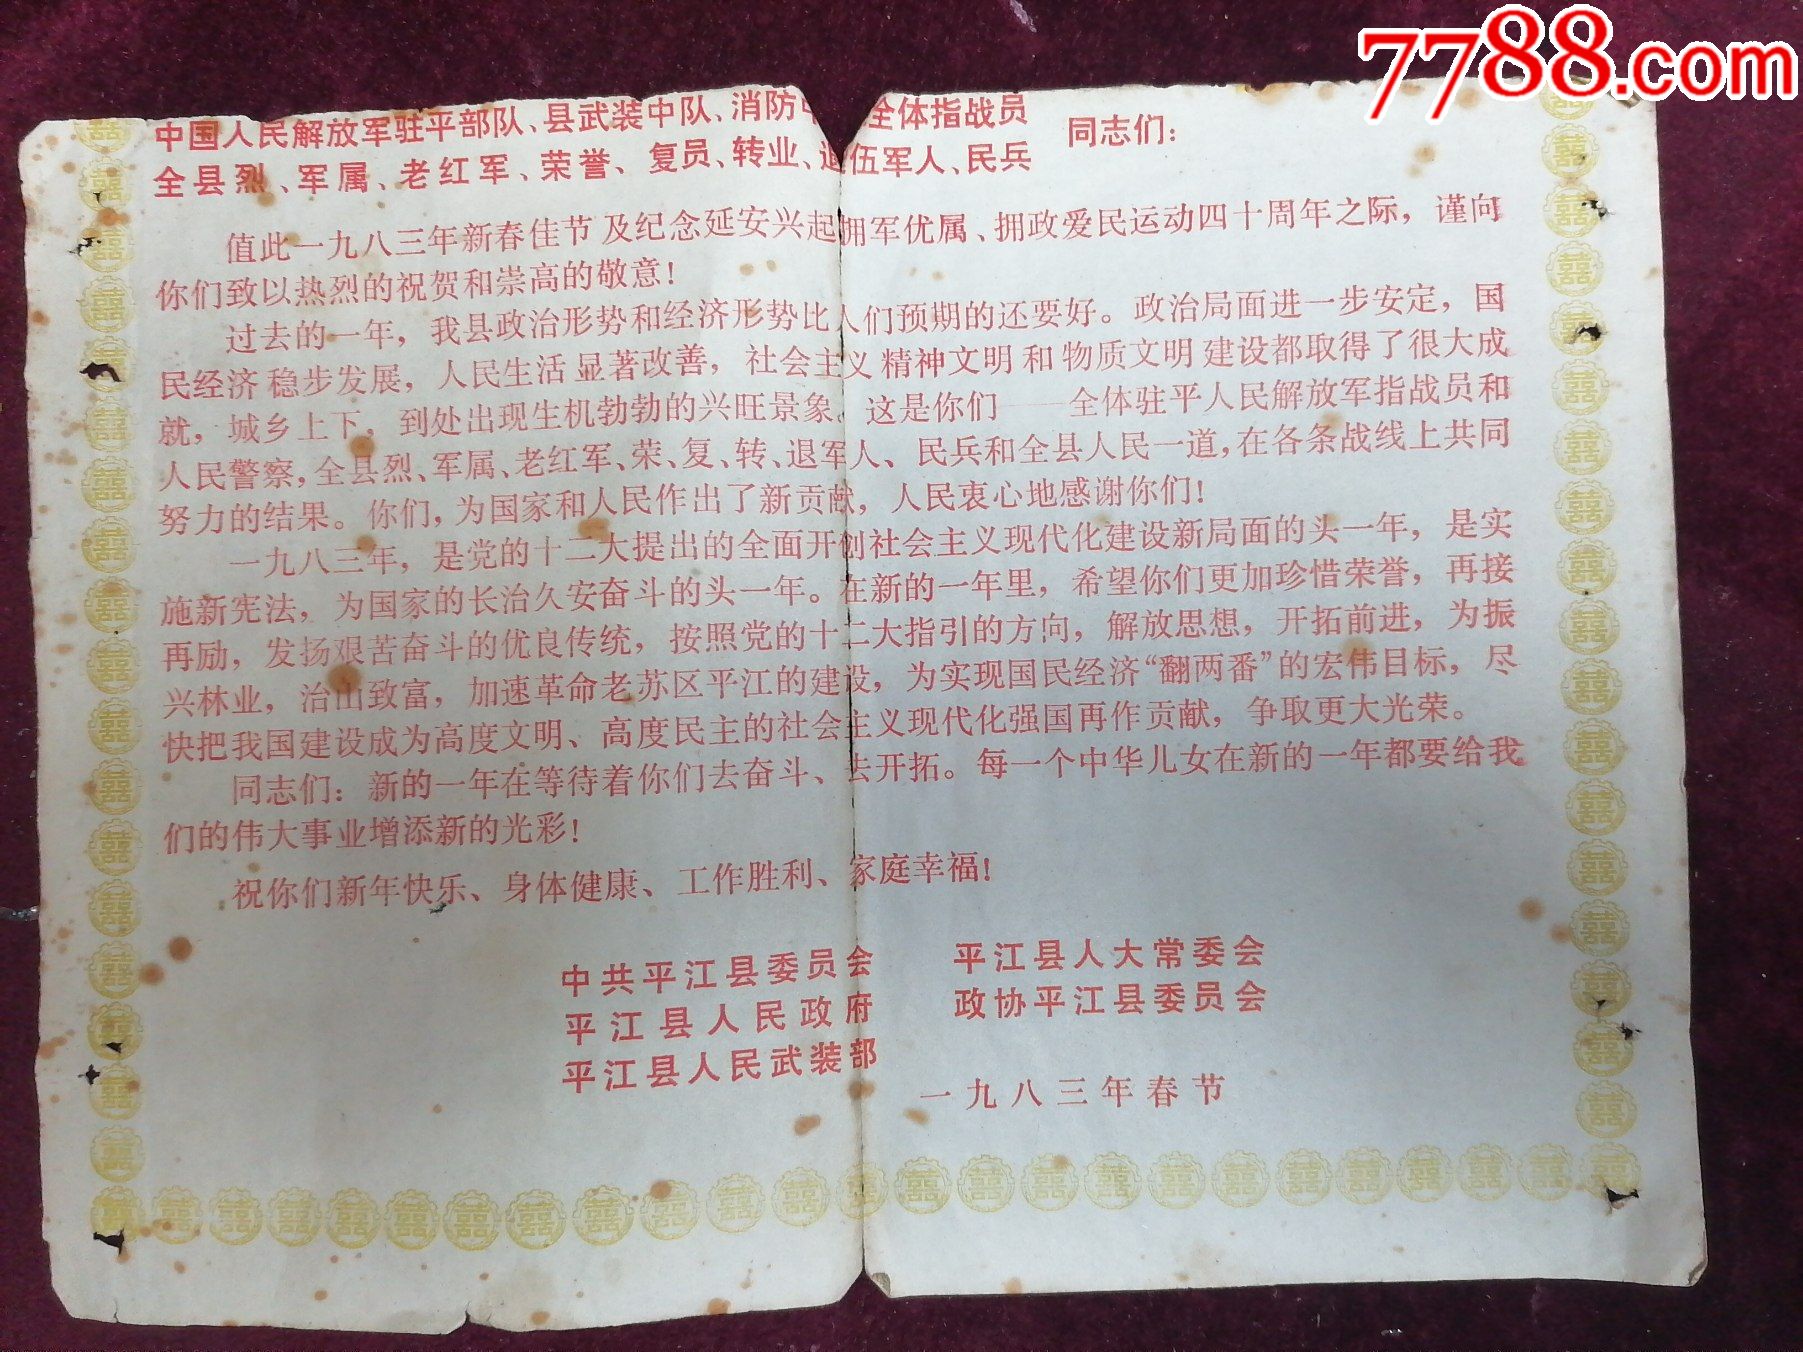 7788.com
中国人民解放军驻平部队、县武装中队、消防中 全体指战员
全县烈、军属、老红军、荣誉、复员、转业、退伍军人、民兵
同志们：
值此一九八三年新春佳节及纪念延安兴起拥军优属、拥政爱民运动四十周年之际，谨向
你们致以热烈的祝贺和崇高的敬意！
过去的一年，我县政治形势和经济形势比人们预期的还要好。政治局面进一步安定，国
民经济稳步发展，人民生活显著改善，社会主义精神文明和物质文明建设都取得了很大成
就，城乡上下，到处出现生机勃勃的兴旺景象。这是你们——全体驻平人民解放军指战员和
人民警察，全县烈、军属、老红军、荣、复、转、退军人、民兵和全县人民一道，在各条战线上共同
努力的结果。你们，为国家和人民作出了新贡献，人民衷心地感谢你们！
一九八三年，是党的十二大提出的全面开创社会主义现代化建设新局面的头一年，是实
施新宪法，为国家的长治久安奋斗的头一年。在新的一年里，希望你们更加珍惜荣誉，再接
再励，发扬艰苦奋斗的优良传统，按照党的十二大指引的方向，解放思想，开拓前进，为振
兴林业，治山致富，加速革命老苏区平江的建设，为实现国民经济“翻两番”的宏伟目标，尽
快把我国建设成为高度文明、高度民主的社会主义现代化强国再作贡献，争取更大光荣。
同志们：新的一年在等待着你们去奋斗、去开拓。每一个中华儿女在新的一年都要给我
们的伟大事业增添新的光彩！
祝你们新年快乐、身体健康、工作胜利、家庭幸福！
中共平江县委员会
平江县人民政府
平江县人民武装部
平江县人大常委会
政协平江县委员会
一九八三年春节